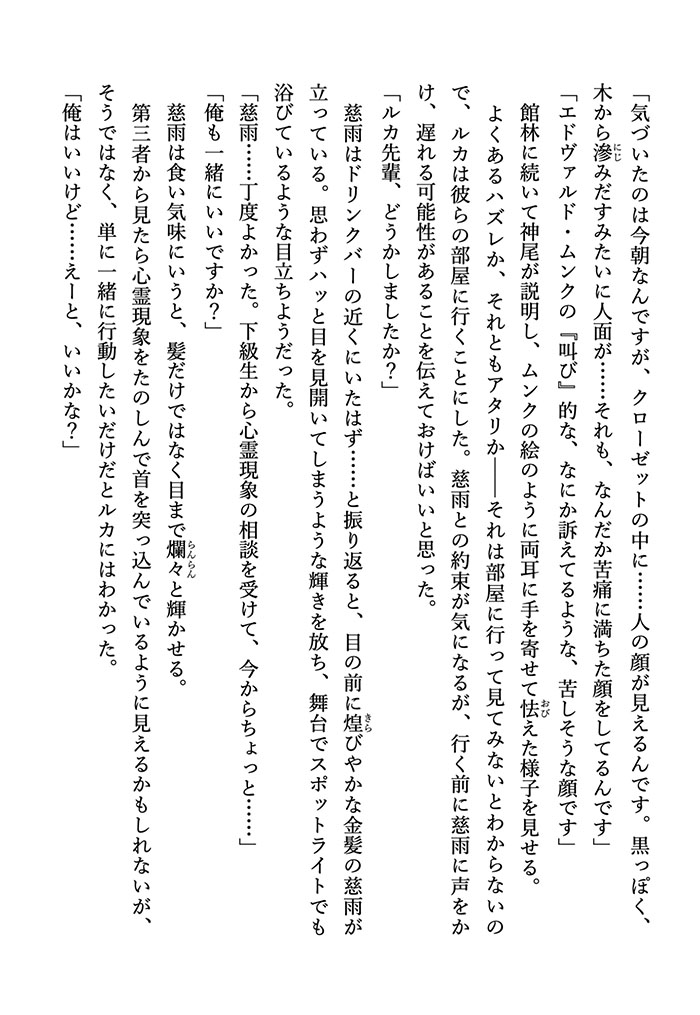 「気づいたのは今朝なんですが、クローゼットの中に……人の顔が見えるんです。黒っぽく、
木から滲にじみだすみたいに人面が……それも、なんだか苦痛に満ちた顔をしてるんです」
「エドヴァルド・ムンクの『叫び』的な、なにか訴えてるような、苦しそうな顔です」
館林に続いて神尾が説明し、ムンクの絵のように両耳に手を寄せて怯おびえた様子を見せる。
よくあるハズレか、それともアタリか――それは部屋に行って見てみないとわからないの
で、ルカは彼らの部屋に行くことにした。慈雨との約束が気になるが、行く前に慈雨に声をか
け、遅れる可能性があることを伝えておけばいいと思った。
「ルカ先輩、どうかしましたか？」
慈雨はドリンクバーの近くにいたはず……と振り返ると、目の前に煌きらびやかな金髪の慈雨が
立っている。思わずハッと目を見開いてしまうような輝きを放ち、舞台でスポットライトでも
浴びているような目立ちようだった。
「慈雨……丁度よかった。下級生から心霊現象の相談を受けて、今からちょっと……」
「俺も一緒にいいですか？」
慈雨は食い気味にいうと、髪だけではなく目まで爛々らんらんと輝かせる。
第三者から見たら心霊現象をたのしんで首を突っ込んでいるように見えるかもしれないが、
そうではなく、単に一緒に行動したいだけだとルカにはわかった。
「俺はいいけど……えーと、いいかな？」